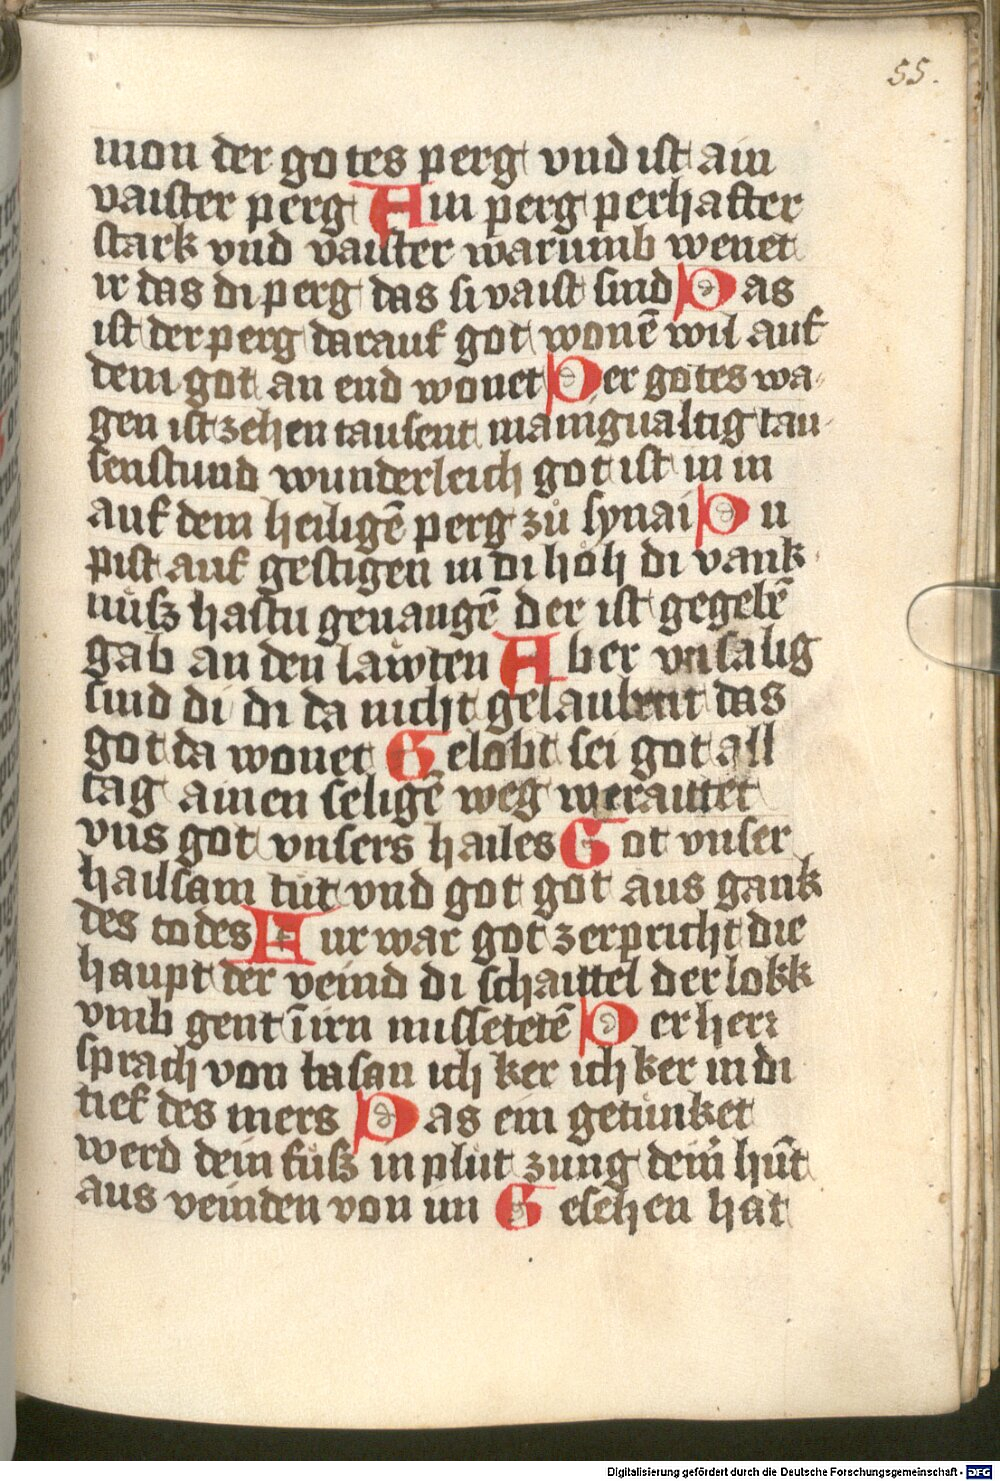 55.
mon der gotes perg vnd ist ain
vaister perg Ain perg perhafter
stark vnd vaister warumb wenet
ir das di perg das si vaist sind Das
ist der perg darauf got wonē wil auf
dem got an end wonet Der gotes wa-
gen ist zehen tausent manigualtig tau-
senstund wunderleich got ist in in
auf dem heiligē perg zů synai Du
pist auf gestigen in di hoh di vank-
nůsz hastu genangē der ist gegebē
gab an den lawten Aber vnsalig
sind di di da nicht gelaubent das
got da wonet Gelobt sei got all
tag ainen seligē weg weraittet
vns got vnsers hailes Got vnser
hailsam tůt vnd got got aus gank
des todes Fur war got zerpricht die
haupt der veind di schaittel der lokk
vmb gent ī irn missetetē Der herr
sprach von basan ich ker ich ker in di
tief des mers Das ein getunket
werd dein fůsz in plůt zung deinr hūt
aus veinden von im Gesehen hat
Digitalisierung gefördert durch die Deutsche Forschungsgemeinschaft - DFG